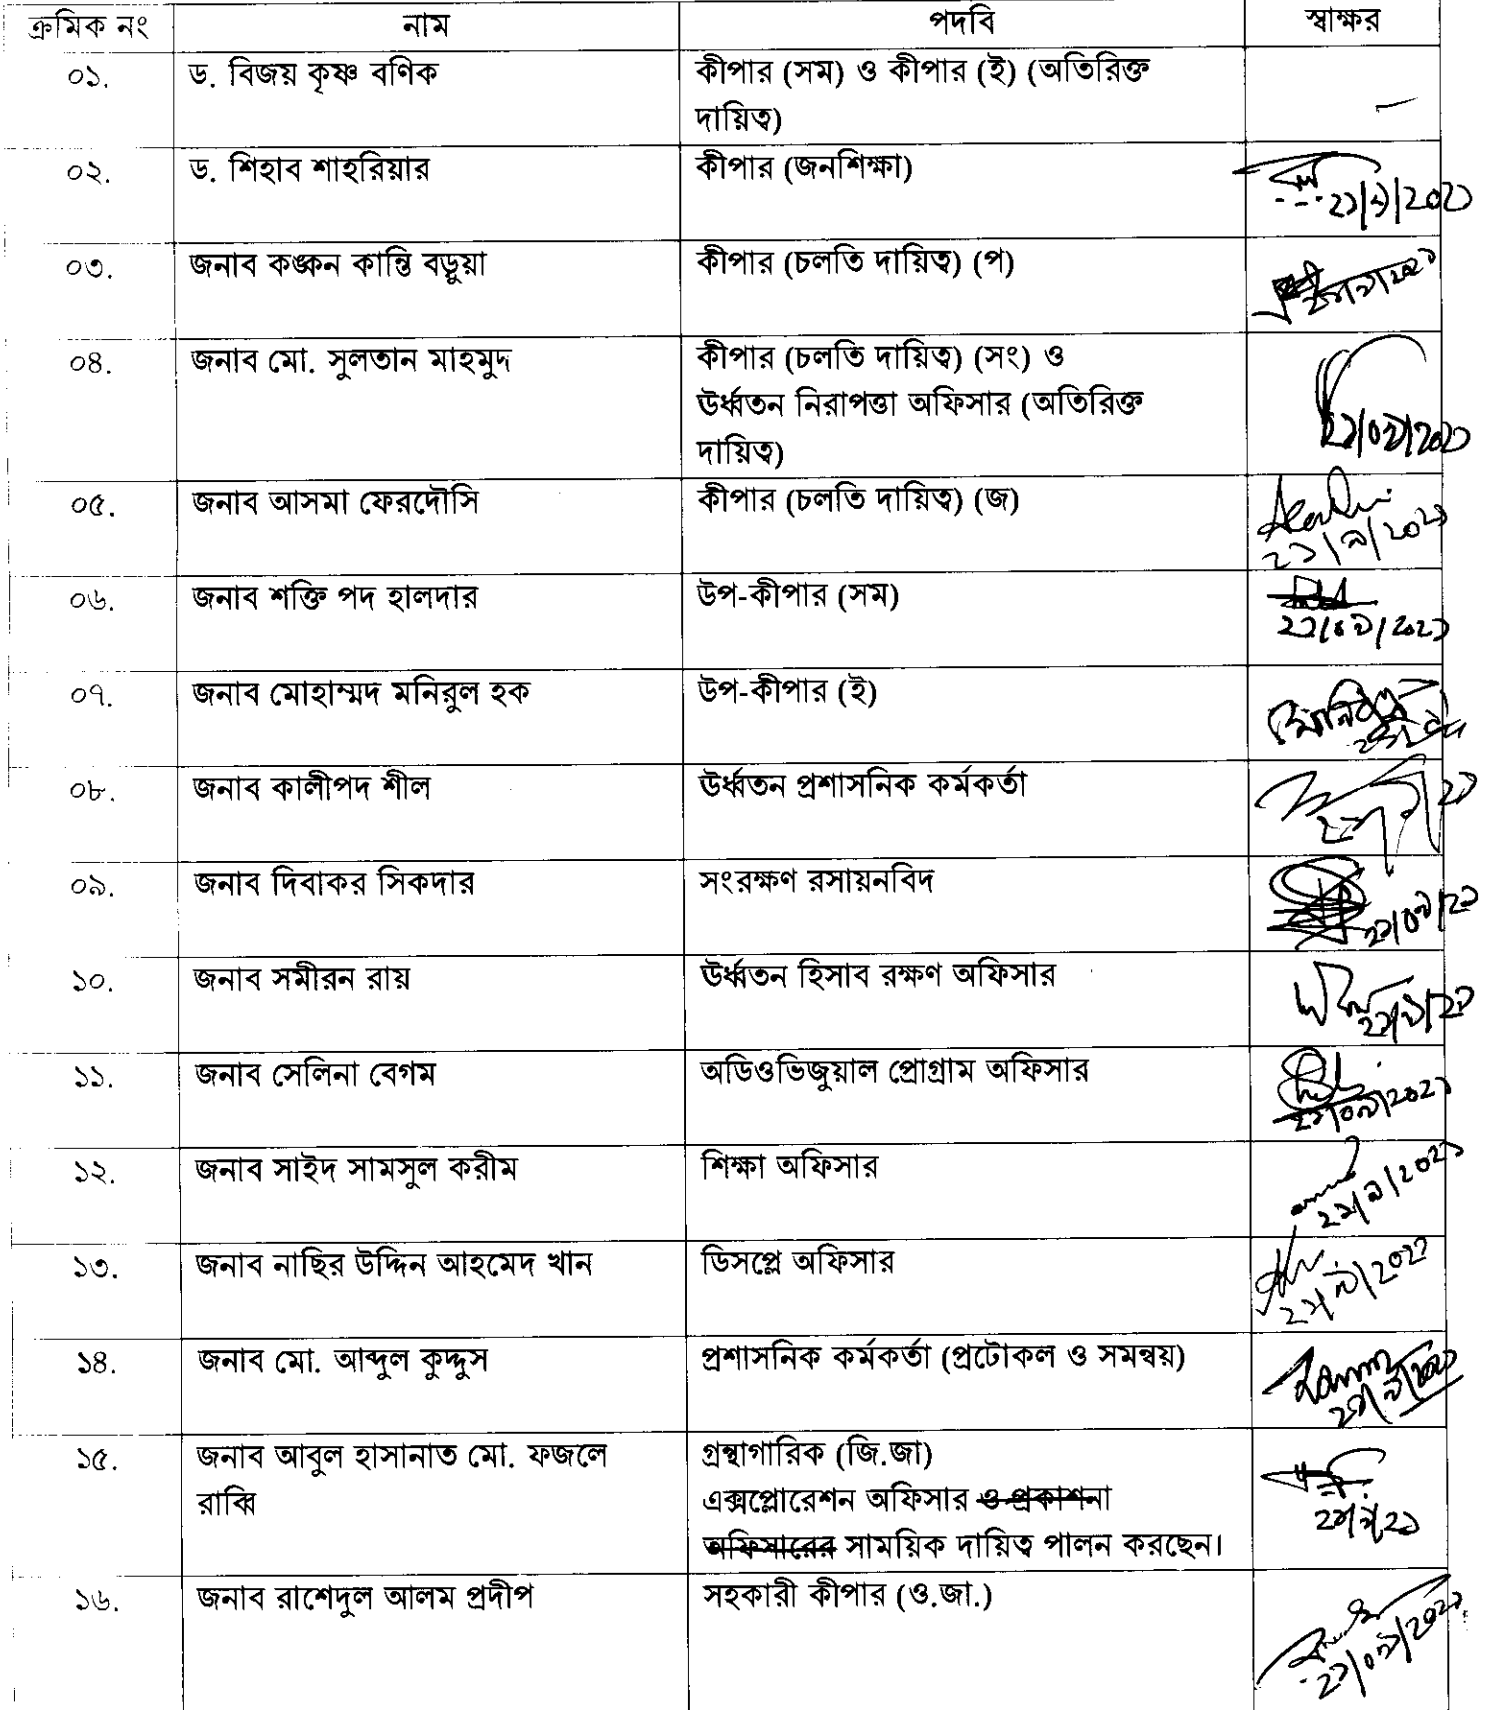 ক্রমিক নং নাম পদবি স্বাক্ষর
০১. ড. বিজয় কৃষ্ণ বণিক কীপার (সম) ও কীপার (ই) (অতিরিক্ত
দায়িত্ব)
০২. ড. শিহাব শাহরিয়ার কীপার (জনশিক্ষা)
০৩. জনাব কঙ্কন কান্তি বড়ুয়া কীপার (চলতি দায়িত্ব) (প)
০৪. জনাব মো. সুলতান মাহমুদ কীপার (চলতি দায়িত্ব) (সং) ও
ঊর্ধ্বতন নিরাপত্তা অফিসার (অতিরিক্ত
দায়িত্ব)
০৫. জনাব আসমা ফেরদৌসি কীপার (চলতি দায়িত্ব) (জ)
০৬. জনাব শক্তি পদ হালদার উপ-কীপার (সম)
০৭. জনাব মোহাম্মদ মনিরুল হক উপ-কীপার (ই)
০৮. জনাব কালীপদ শীল ঊর্ধ্বতন প্রশাসনিক কর্মকর্তা
০৯. জনাব দিবাকর সিকদার সংরক্ষণ রসায়নবিদ
১০. জনাব সমীরন রায় ঊর্ধ্বতন হিসাব রক্ষণ অফিসার
১১. জনাব সেলিনা বেগম অডিওভিজুয়াল প্রোগ্রাম অফিসার
১২. জনাব সাইদ সামসুল করীম শিক্ষা অফিসার
১৩. জনাব নাছির উদ্দিন আহমেদ খান ডিসপ্লে অফিসার
১৪. জনাব মো. আব্দুল কুদ্দুস প্রশাসনিক কর্মকর্তা (প্রটোকল ও সমন্বয়)
১৫. জনাব আবুল হাসানাত মো. ফজলে গ্রন্থাগারিক (জি.জা)
রাব্বি এক্সপ্লোরেশন অফিসার ও প্রকাশনা
অফিসারের সাময়িক দায়িত্ব পালন করছেন।
১৬. জনাব রাশেদুল আলম প্রদীপ সহকারী কীপার (ও.জা.)